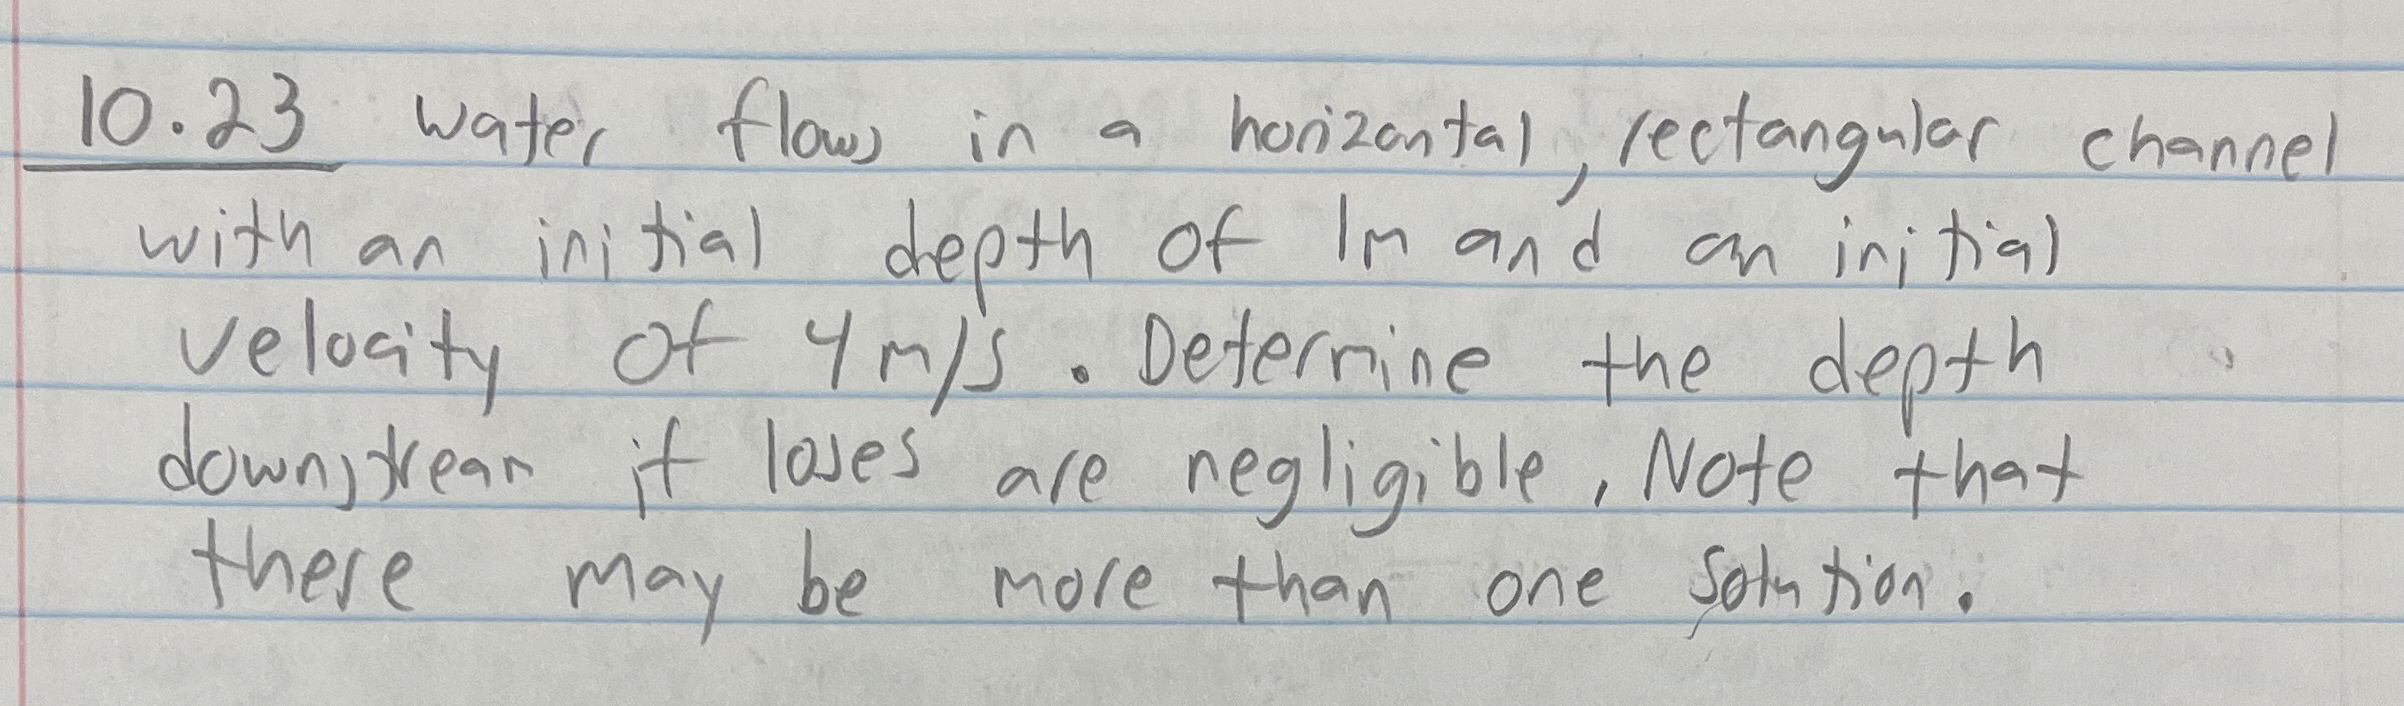 10.23 water flows in a horizontal, rectangular channel
with an initial depth of 1m and an initial
velocity of 4 m/s. Determine the depth
downstream if loses are negligible. Note that
there may be more than one solution.